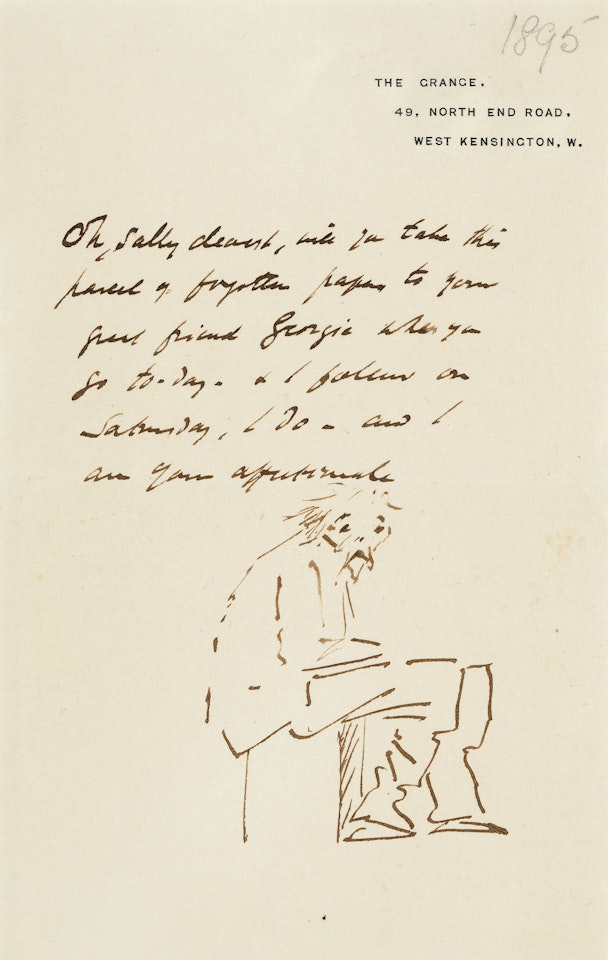 1895
THE GRANGE.
49, NORTH END ROAD.
WEST KENSINGTON, W.
Oh, Sally dearest, will you take this
parcel of forgotten papers to your
great friend Georgie when you
go to-day - & I follow on
Saturday, I do - and I
am your affectionate